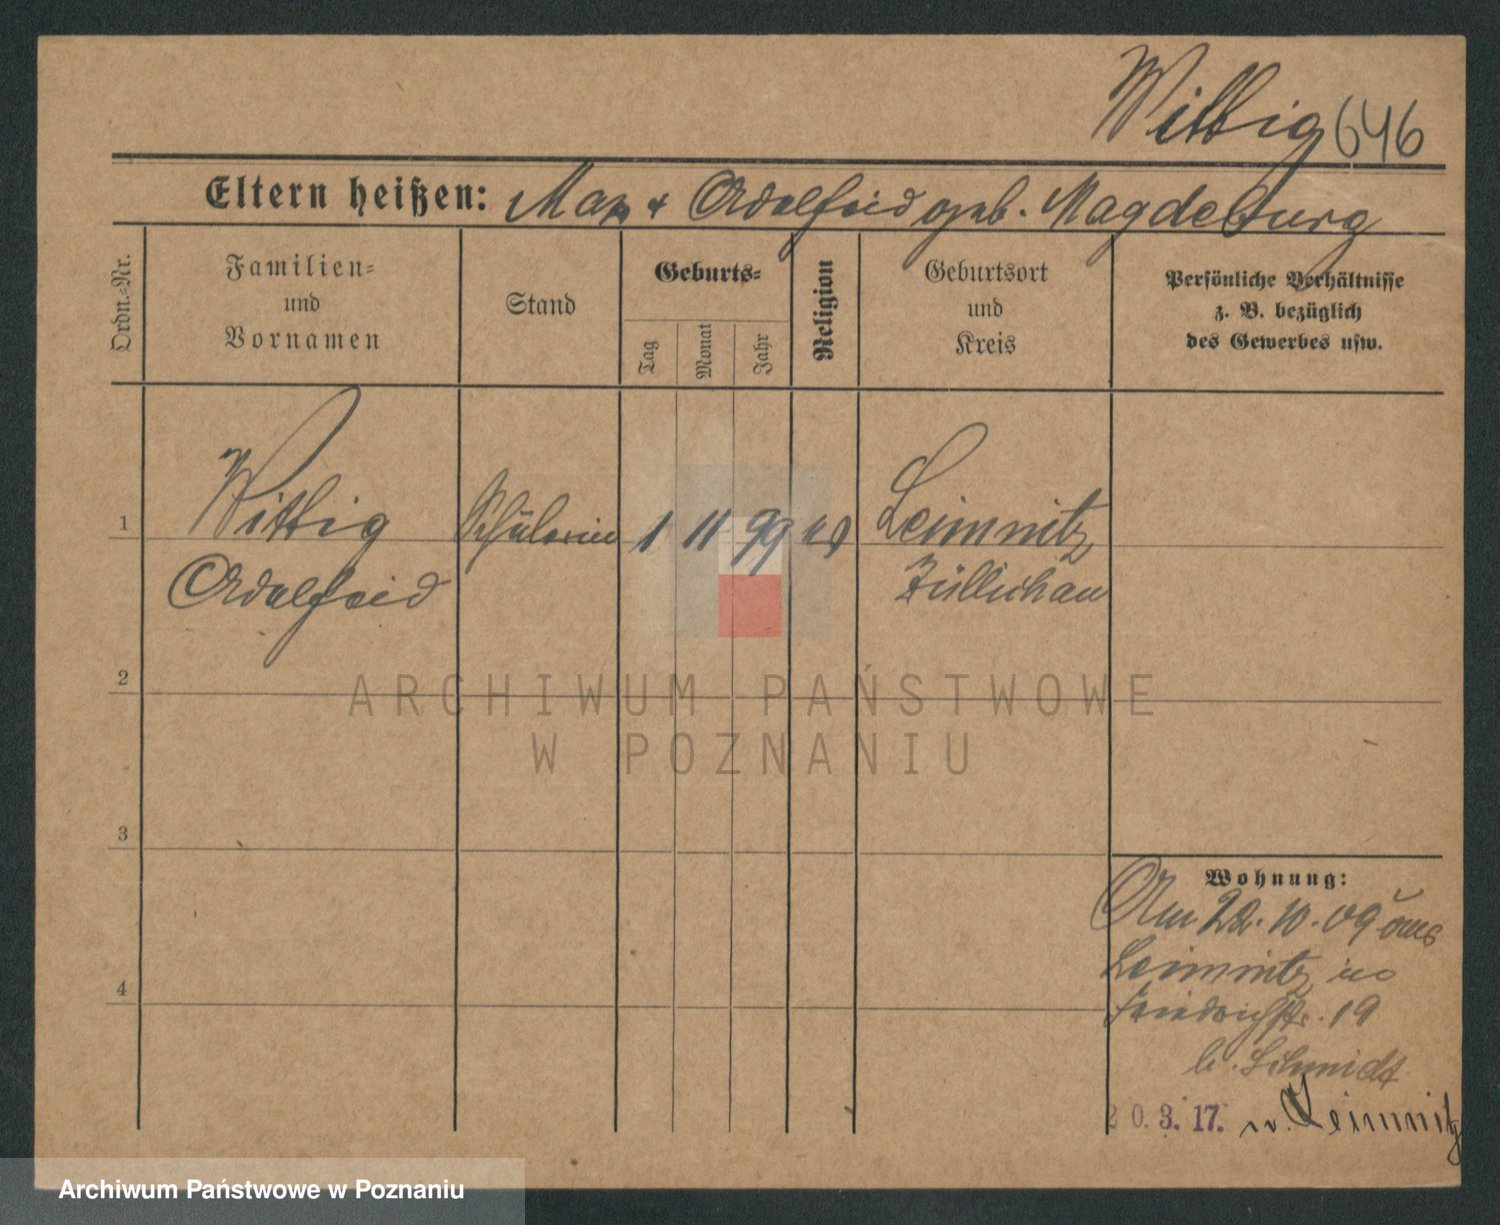 Wittig 646
Eltern heißen: Max + Adelheid geb. Magdeburg
Ordn.-Nr.
Familien-
und
Vornamen
Stand
Geburts-
Tag
Monat
Jahr
Religion
Geburtsort
und
Kreis
Persönliche Verhältnisse
z. B. bezüglich
des Gewerbes usw.
1
Wittig
Adelheid
Schülerin
1 11 99
Leimnitz
Züllichau
2
ARCHIWUM PAŃSTWOWE
W POZNANIU
3
Wohnung:
Am 22.10.09 aus
Leimnitz in
Friedrichstr. 19
b. Schmidt
4
20.3.17. n. Leimnitz
Archiwum Państwowe w Poznaniu